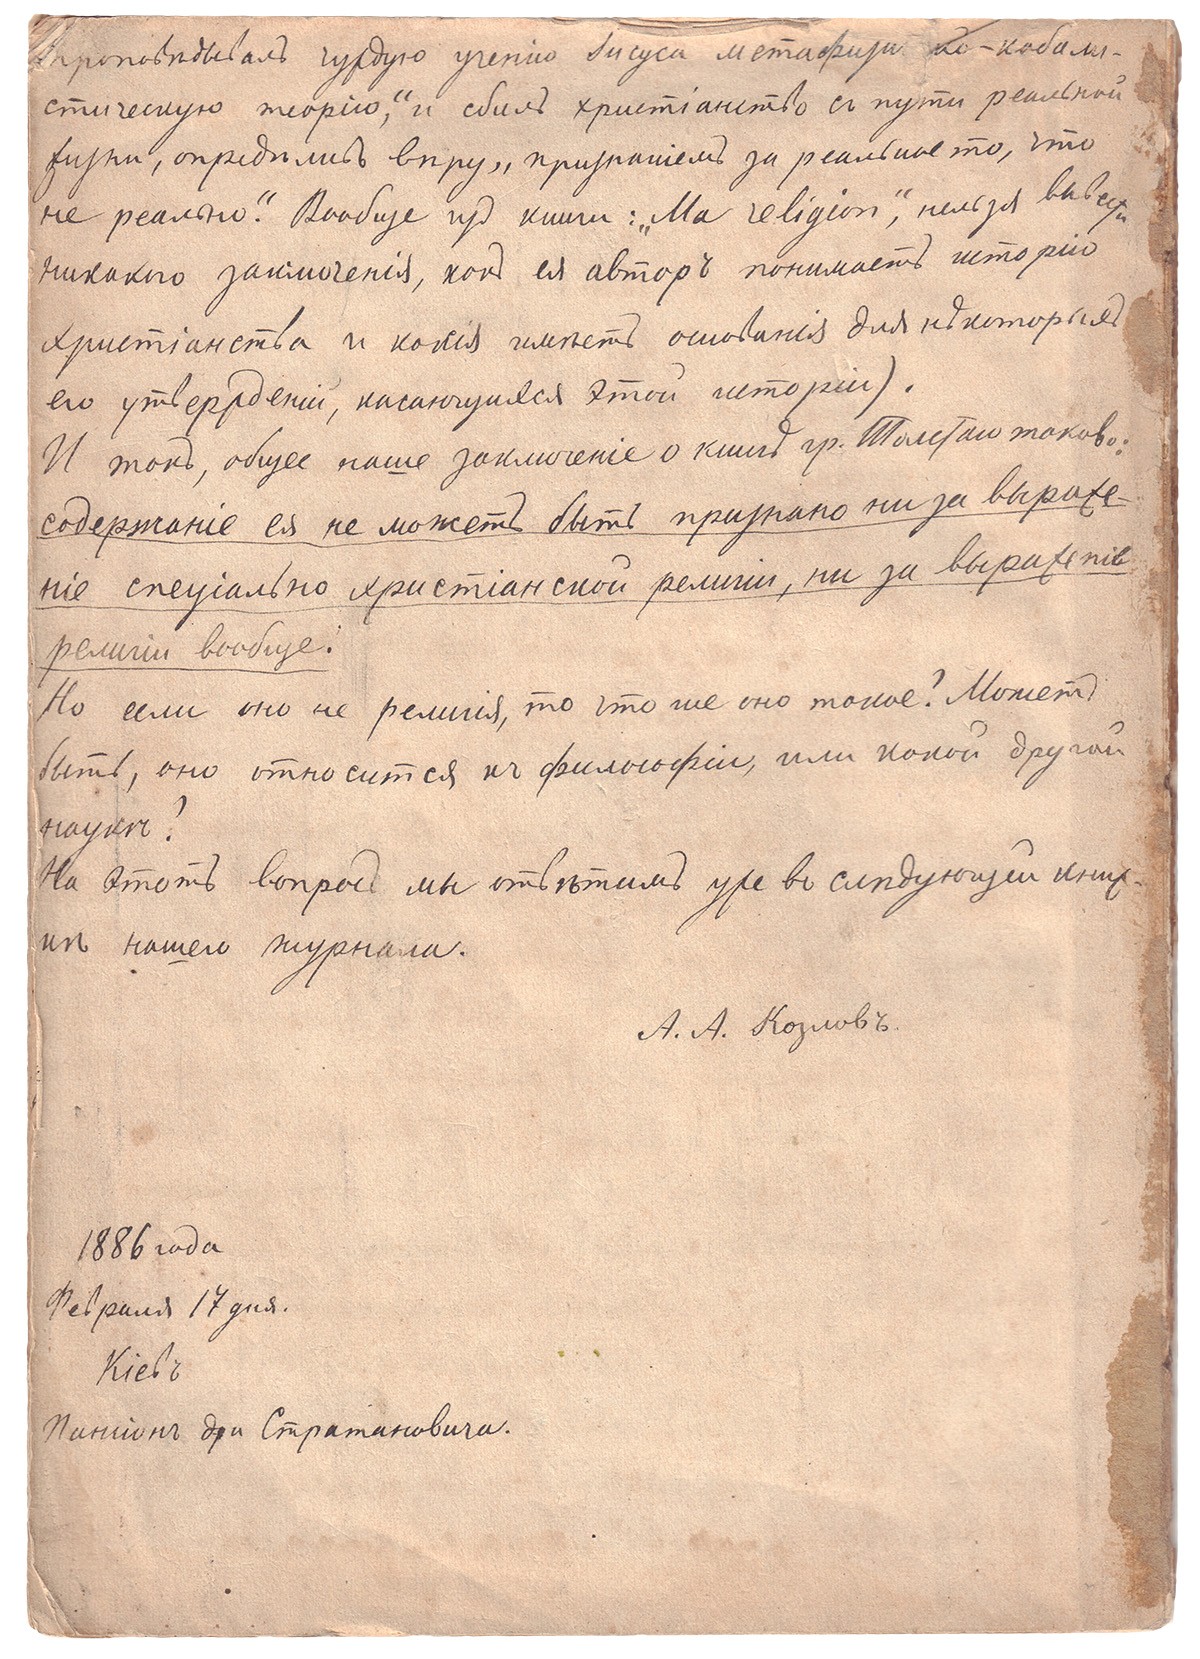 проповѣдывалъ чуждую ученію Іисуса метафизико-кабали-
стическую теорію," и сбилъ христіанство съ пути реальной
жизни, опредѣливъ вѣру „признаніемъ за реальное то, что
не реально." Вообще изъ книги: „Ma religion", нельзя вывести
никакого заключенія, какъ ея авторъ понимаетъ исторію
христіанства и какія имѣетъ основанія для нѣкоторыхъ
его утвержденій, касающихся этой исторіи).
И такъ, общее наше заключеніе о книгѣ гр. Толстаго таково:
содержаніе ея не можетъ быть признано ни за выраже-
ніе спеціально христіанской религіи, ни за выраженіе
религіи вообще.
Но если оно не религія, то что же оно такое? Можетъ
быть, оно относится къ философіи, или какой другой
наукѣ?
На этотъ вопросъ мы отвѣтимъ уже въ слѣдующей книж-
кѣ нашего журнала.
А. А. Козловъ.
1886 года
Февраля 17 дня.
Кіевъ
Пансіонъ дра Стратановича.